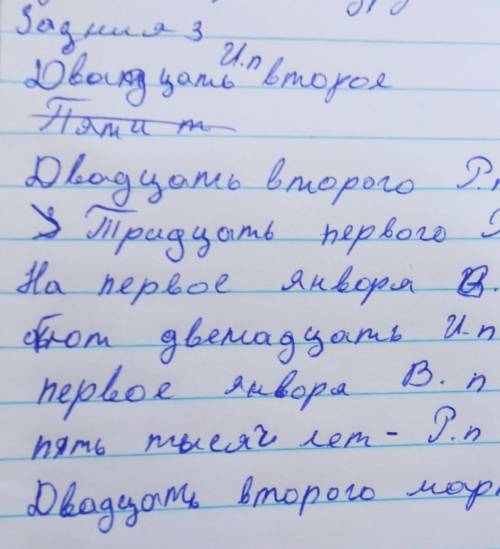 Задния 3
И.п
Двандцать второя
Пяти т
Двадцать второго Р.п
Тридцать первого
На первое января В.
бьют двенадцать И.п
первое января В. п
пять тысяч лет - Р.п
Двадцать второго мар